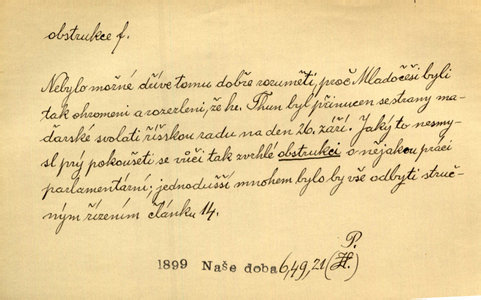 obstrukce f.
Nebylo možné dříve tomu dobře rozuměti, proč Mladočeši byli
tak ohromeni a rozerleni, že hr. Thun byl přinucen se strany ma-
ďarské svolati říšskou radu na den 26. září. Jaký to nesmy-
sl prý pokoušeti se vůči tak zvrhlé obstrukci o nějakou práci
parlamentární; jednodušší mnohem bylo by vše odbyti struč-
ným řízením článku 14.
P.
1899 Naše doba 6,49,21 (H.)